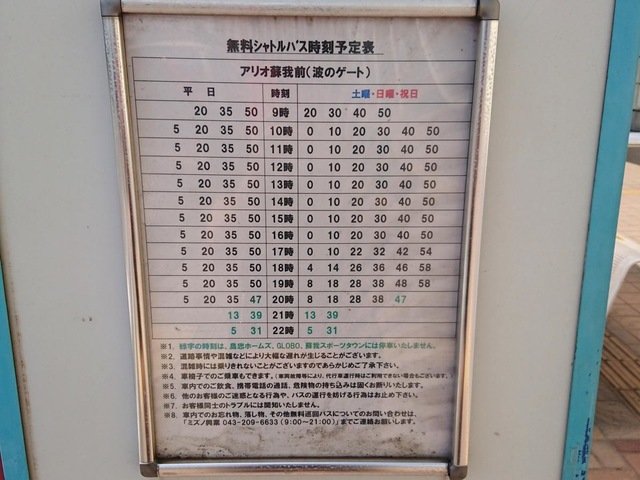 無料シャトルバス時刻予定表
アリオ蘇我前(波のゲート)
平 日 時刻 土曜・日曜・祝日
20 35 50 9時 20 30 40 50
5 20 35 50 10時 0 10 20 30 40 50
5 20 35 50 11時 0 10 20 30 40 50
5 20 35 50 12時 0 10 20 30 40 50
5 20 35 50 13時 0 10 20 30 40 50
5 20 35 50 14時 0 10 20 30 40 50
5 20 35 50 15時 0 10 20 30 40 50
5 20 35 50 16時 0 10 20 30 40 50
5 20 35 50 17時 0 10 22 32 42 54
5 20 35 50 18時 4 14 26 36 46 58
5 20 35 50 19時 8 18 28 38 48 58
5 20 35 47 20時 8 18 28 38 47
13 39 21時 13 39
5 31 22時 5 31
※1. 緑字の時刻は、島忠ホームズ、GLOBO、蘇我スポーツタウンには停車いたしません。
※2. 道路事情や混雑などにより大幅な遅れが生じることがございます。
※3. 混雑時には乗りきれないことがございますのであらかじめご了承下さい。
※4. 車椅子でのご乗車もできます。(車両故障等により、代行車運行時はご利用できない場合もございます。
※5. 車内でのご飲食、携帯電話の通話、危険物の持ち込みは固くお断りいたします。
※6. 他のお客様のご迷惑となる行為や、バスの運行を妨げる行為はお止め下さい。
※7. お客様同士のトラブルには関知いたしません。
※8. 車内でのお忘れ物、落し物、その他無料巡回バスについてのお問い合わせは、
「ミズノ興業 043-209-6633 (9:00~21:00)」までご連絡お願いします。